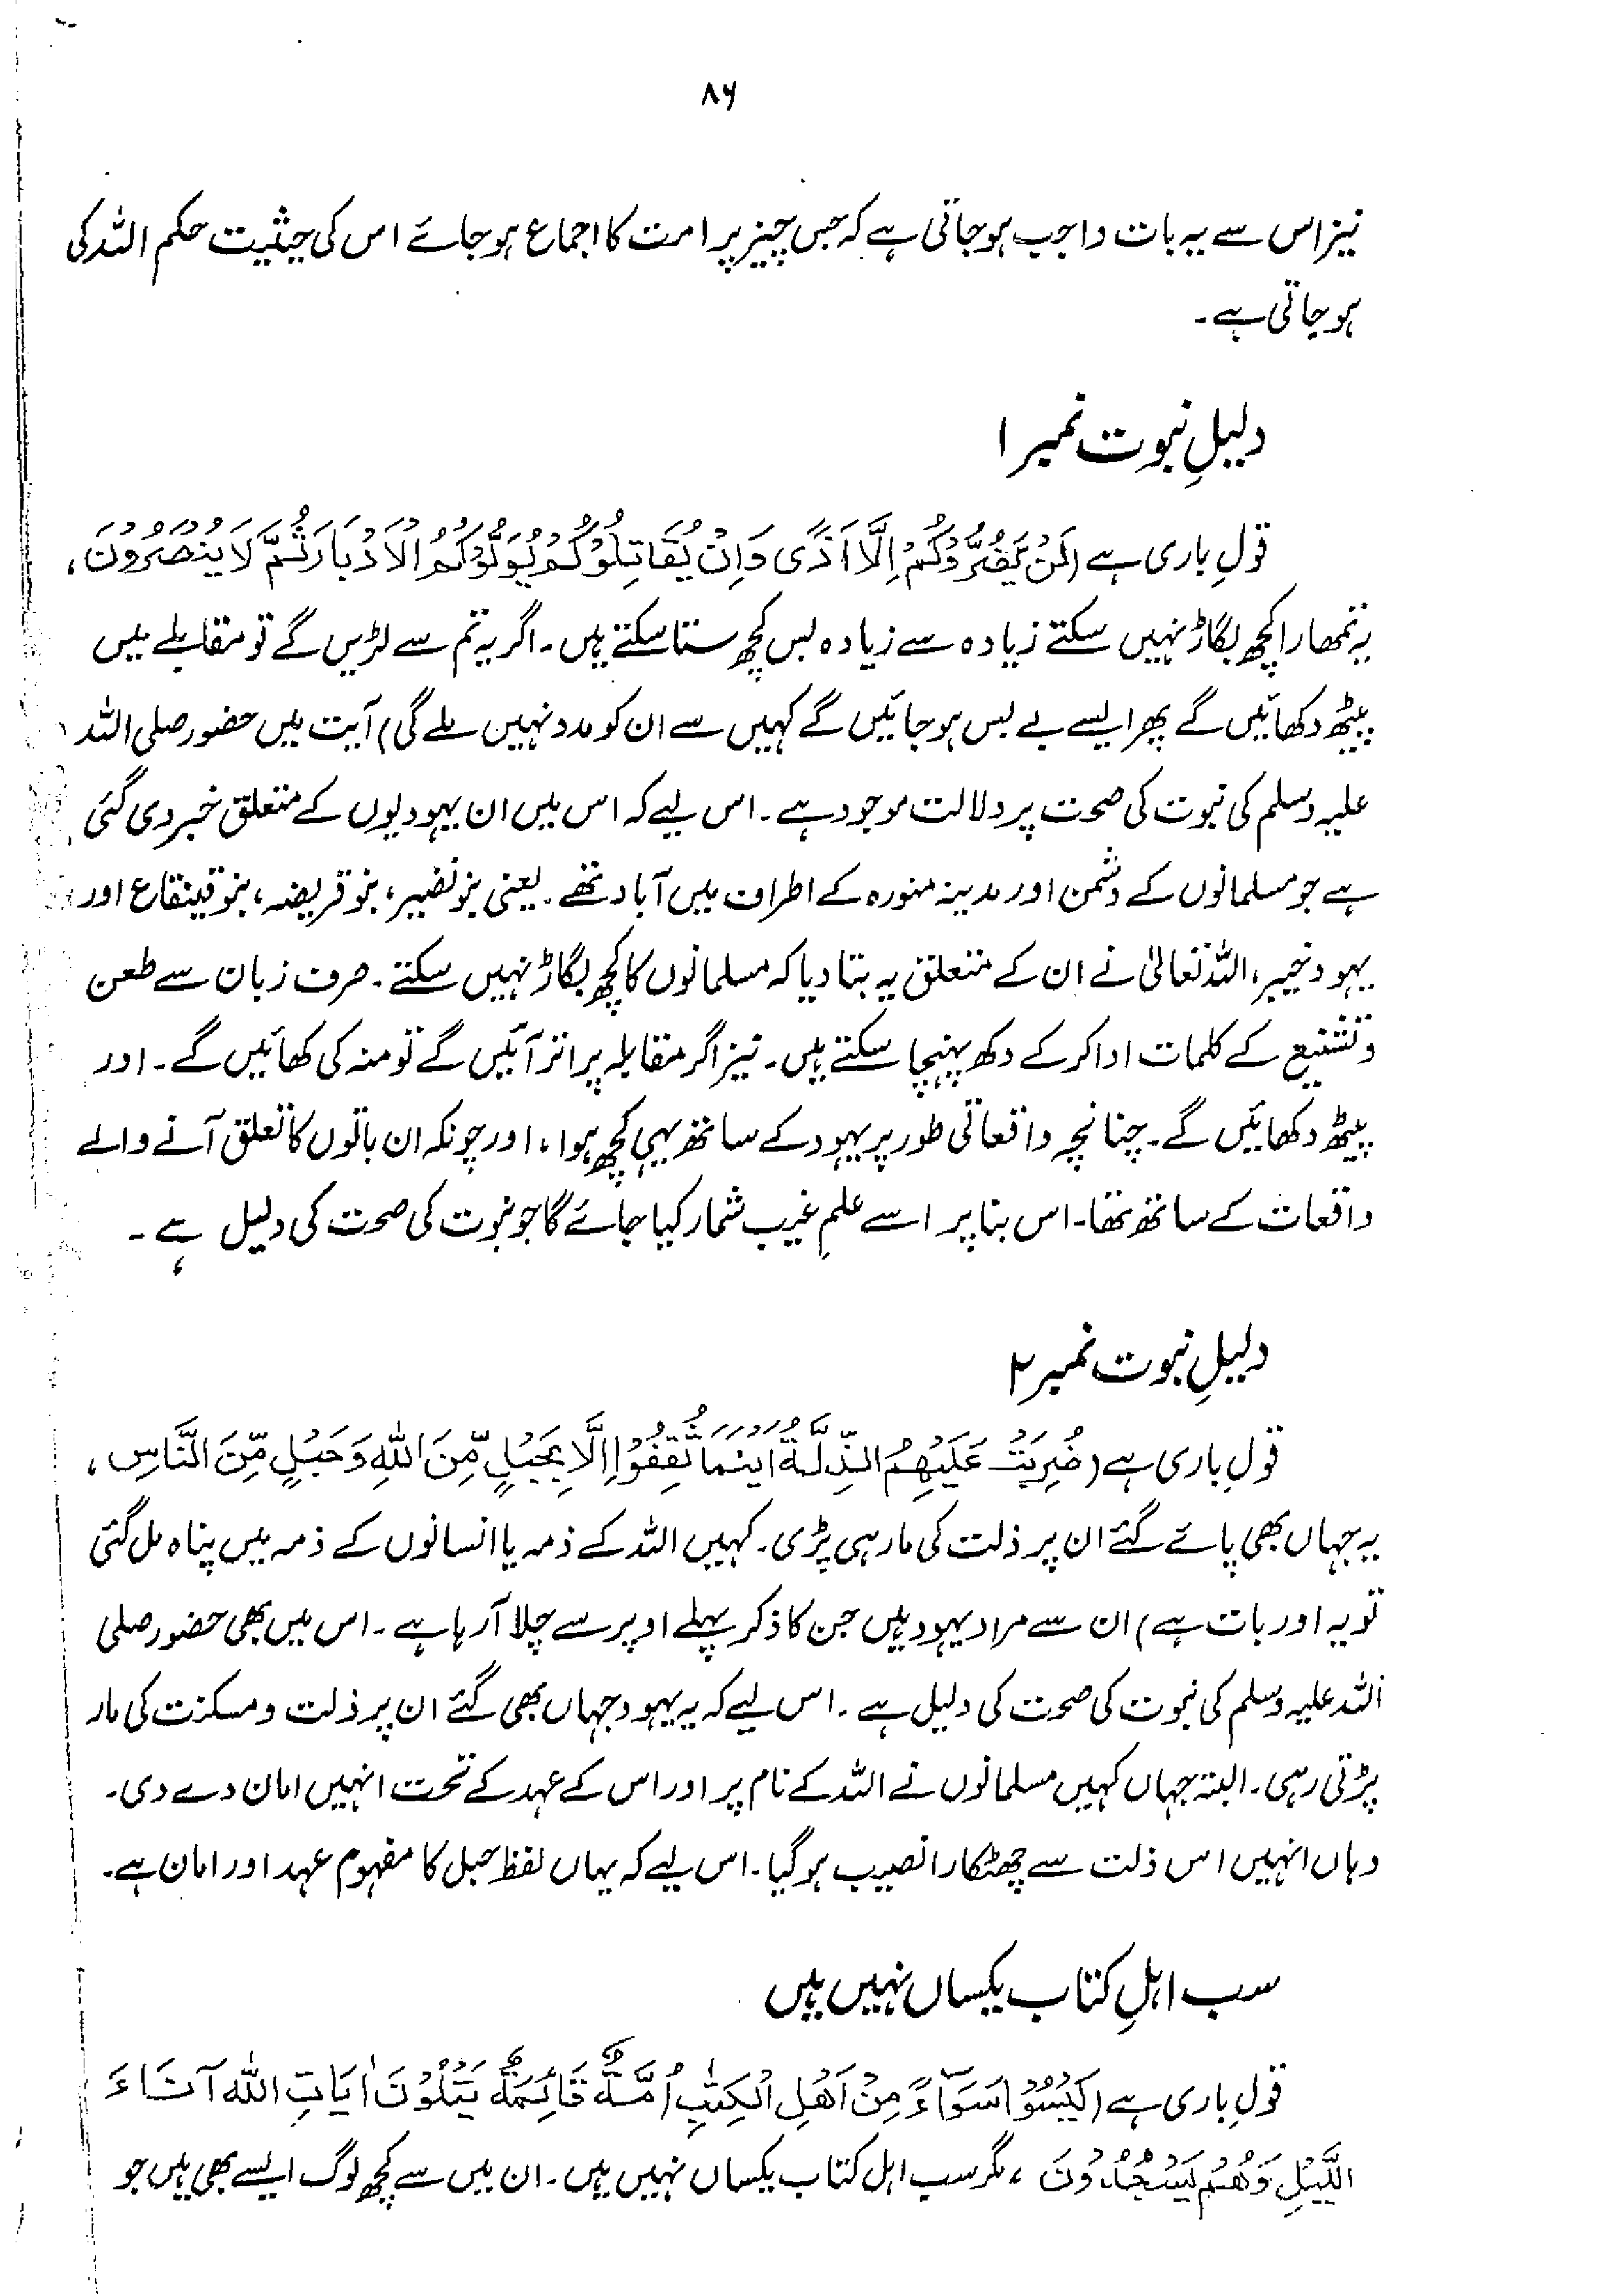 ۸۶
نیز اس سے یہ بات واجب ہو جاتی ہے کہ جس چیز پر امت کا اجماع ہو جائے اس کی حیثیت حکم اللہ کی
ہو جاتی ہے۔
دلیلِ نبوت نمبر ۱
قولِ باری ہے (لَنْ يَّضُرُّوْكُمْ اِلَّا اَذًى وَاِنْ يُّقَاتِلُوْكُمْ يُوَلُّوْكُمُ الْاَدْبَارَ ثُمَّ لَا يُنْصَرُوْنَ،
یہ تمھارا کچھ بگاڑ نہیں سکتے زیادہ سے زیادہ بس کچھ ستا سکتے ہیں۔ اگر یہ تم سے لڑیں گے تو مقابلے میں
پیٹھ دکھائیں گے پھر ایسے بے بس ہو جائیں گے کہیں سے ان کو مدد نہیں ملے گی) آیت میں حضور صلی اللہ
علیہ وسلم کی نبوت کی صحت پر دلالت موجود ہے۔ اس لیے کہ اس میں ان یہودیوں کے متعلق خبر دی گئی
ہے جو مسلمانوں کے دشمن اور مدینہ منورہ کے اطراف میں آباد تھے۔ یعنی بنو نضیر، بنو قریضہ، بنو قینقاع اور
یہود خیبر، اللہ تعالیٰ نے ان کے متعلق یہ بتا دیا کہ مسلمانوں کا کچھ بگاڑ نہیں سکتے۔ صرف زبان سے طعن
وتشنیع کے کلمات ادا کر کے دکھ پہنچا سکتے ہیں۔ نیز اگر مقابلہ پر اتر آئیں گے تو منہ کی کھائیں گے۔ اور
پیٹھ دکھائیں گے۔ چنانچہ واقعاتی طور پر یہود کے ساتھ یہی کچھ ہوا، اور چونکہ ان باتوں کا تعلق آنے والے
واقعات کے ساتھ تھا۔ اس بنا پر اسے علمِ غیب شمار کیا جائے گا جو نبوت کی صحت کی دلیل ہے۔
دلیلِ نبوت نمبر ۲
قولِ باری ہے (ضُرِبَتْ عَلَيْهِمُ الذِّلَّةُ اَيْنَمَا ثُقِفُوْا اِلَّا بِحَبْلٍ مِّنَ اللهِ وَحَبْلٍ مِّنَ النَّاسِ،
یہ جہاں بھی پائے گئے ان پر ذلت کی مار ہی پڑی۔ کہیں اللہ کے ذمہ یا انسانوں کے ذمہ میں پناہ مل گئی
تو یہ اور بات ہے) ان سے مراد یہود ہیں جن کا ذکر پہلے اوپر سے چلا آ رہا ہے۔ اس میں بھی حضور صلی
اللہ علیہ وسلم کی نبوت کی صحت کی دلیل ہے۔ اس لیے کہ یہ یہود جہاں بھی گئے ان پر ذلت و مسکنت کی مار
پڑتی رہی۔ البتہ جہاں کہیں مسلمانوں نے اللہ کے نام پر اور اس کے عہد کے تحت انہیں امان دے دی۔
وہاں انہیں اس ذلت سے چھٹکارا نصیب ہو گیا۔ اس لیے کہ یہاں لفظ حبل کا مفہوم عہد اور امان ہے۔
سب اہلِ کتاب یکساں نہیں ہیں
قولِ باری ہے (لَيْسُوْا سَوَآءً مِنْ اَهْلِ الْكِتٰبِ اُمَّةٌ قَائِمَةٌ يَتْلُوْنَ اٰيَاتِ اللّٰه آنَاءَ
اللَّيْلِ وَهُمْ يَسْجُدُوْنَ، مگر سب اہل کتاب یکساں نہیں ہیں۔ ان میں سے کچھ لوگ ایسے بھی ہیں جو